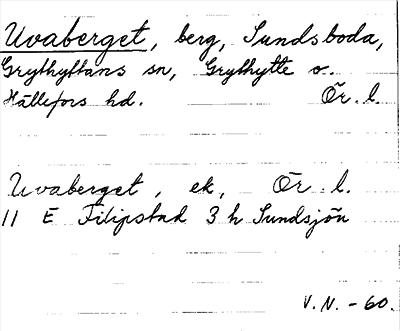 Uvaberget, berg, Sundsboda,
Grythyttans sn, Grythytte o.
Hällefors hd. Ör. l.
Uvaberget, ek, Ör l.
11 E Filipstad 3 h Sundsjön
V. N. - 60.